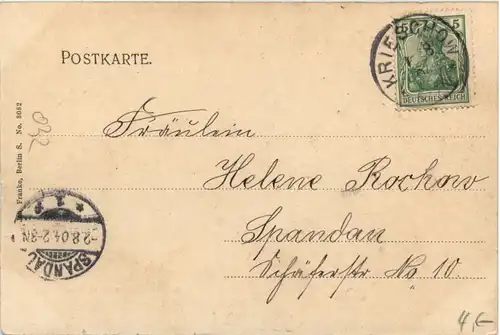 POSTKARTE.
KRIESCHOW
5
DEUTSCHES REICH
Franke, Berlin S. No. 3082
032
Fräulein
Helene Rochow
Spandau
Schäferstr No 10.
SPANDAU
-2.8.04.2-3N.
* 1
4,-